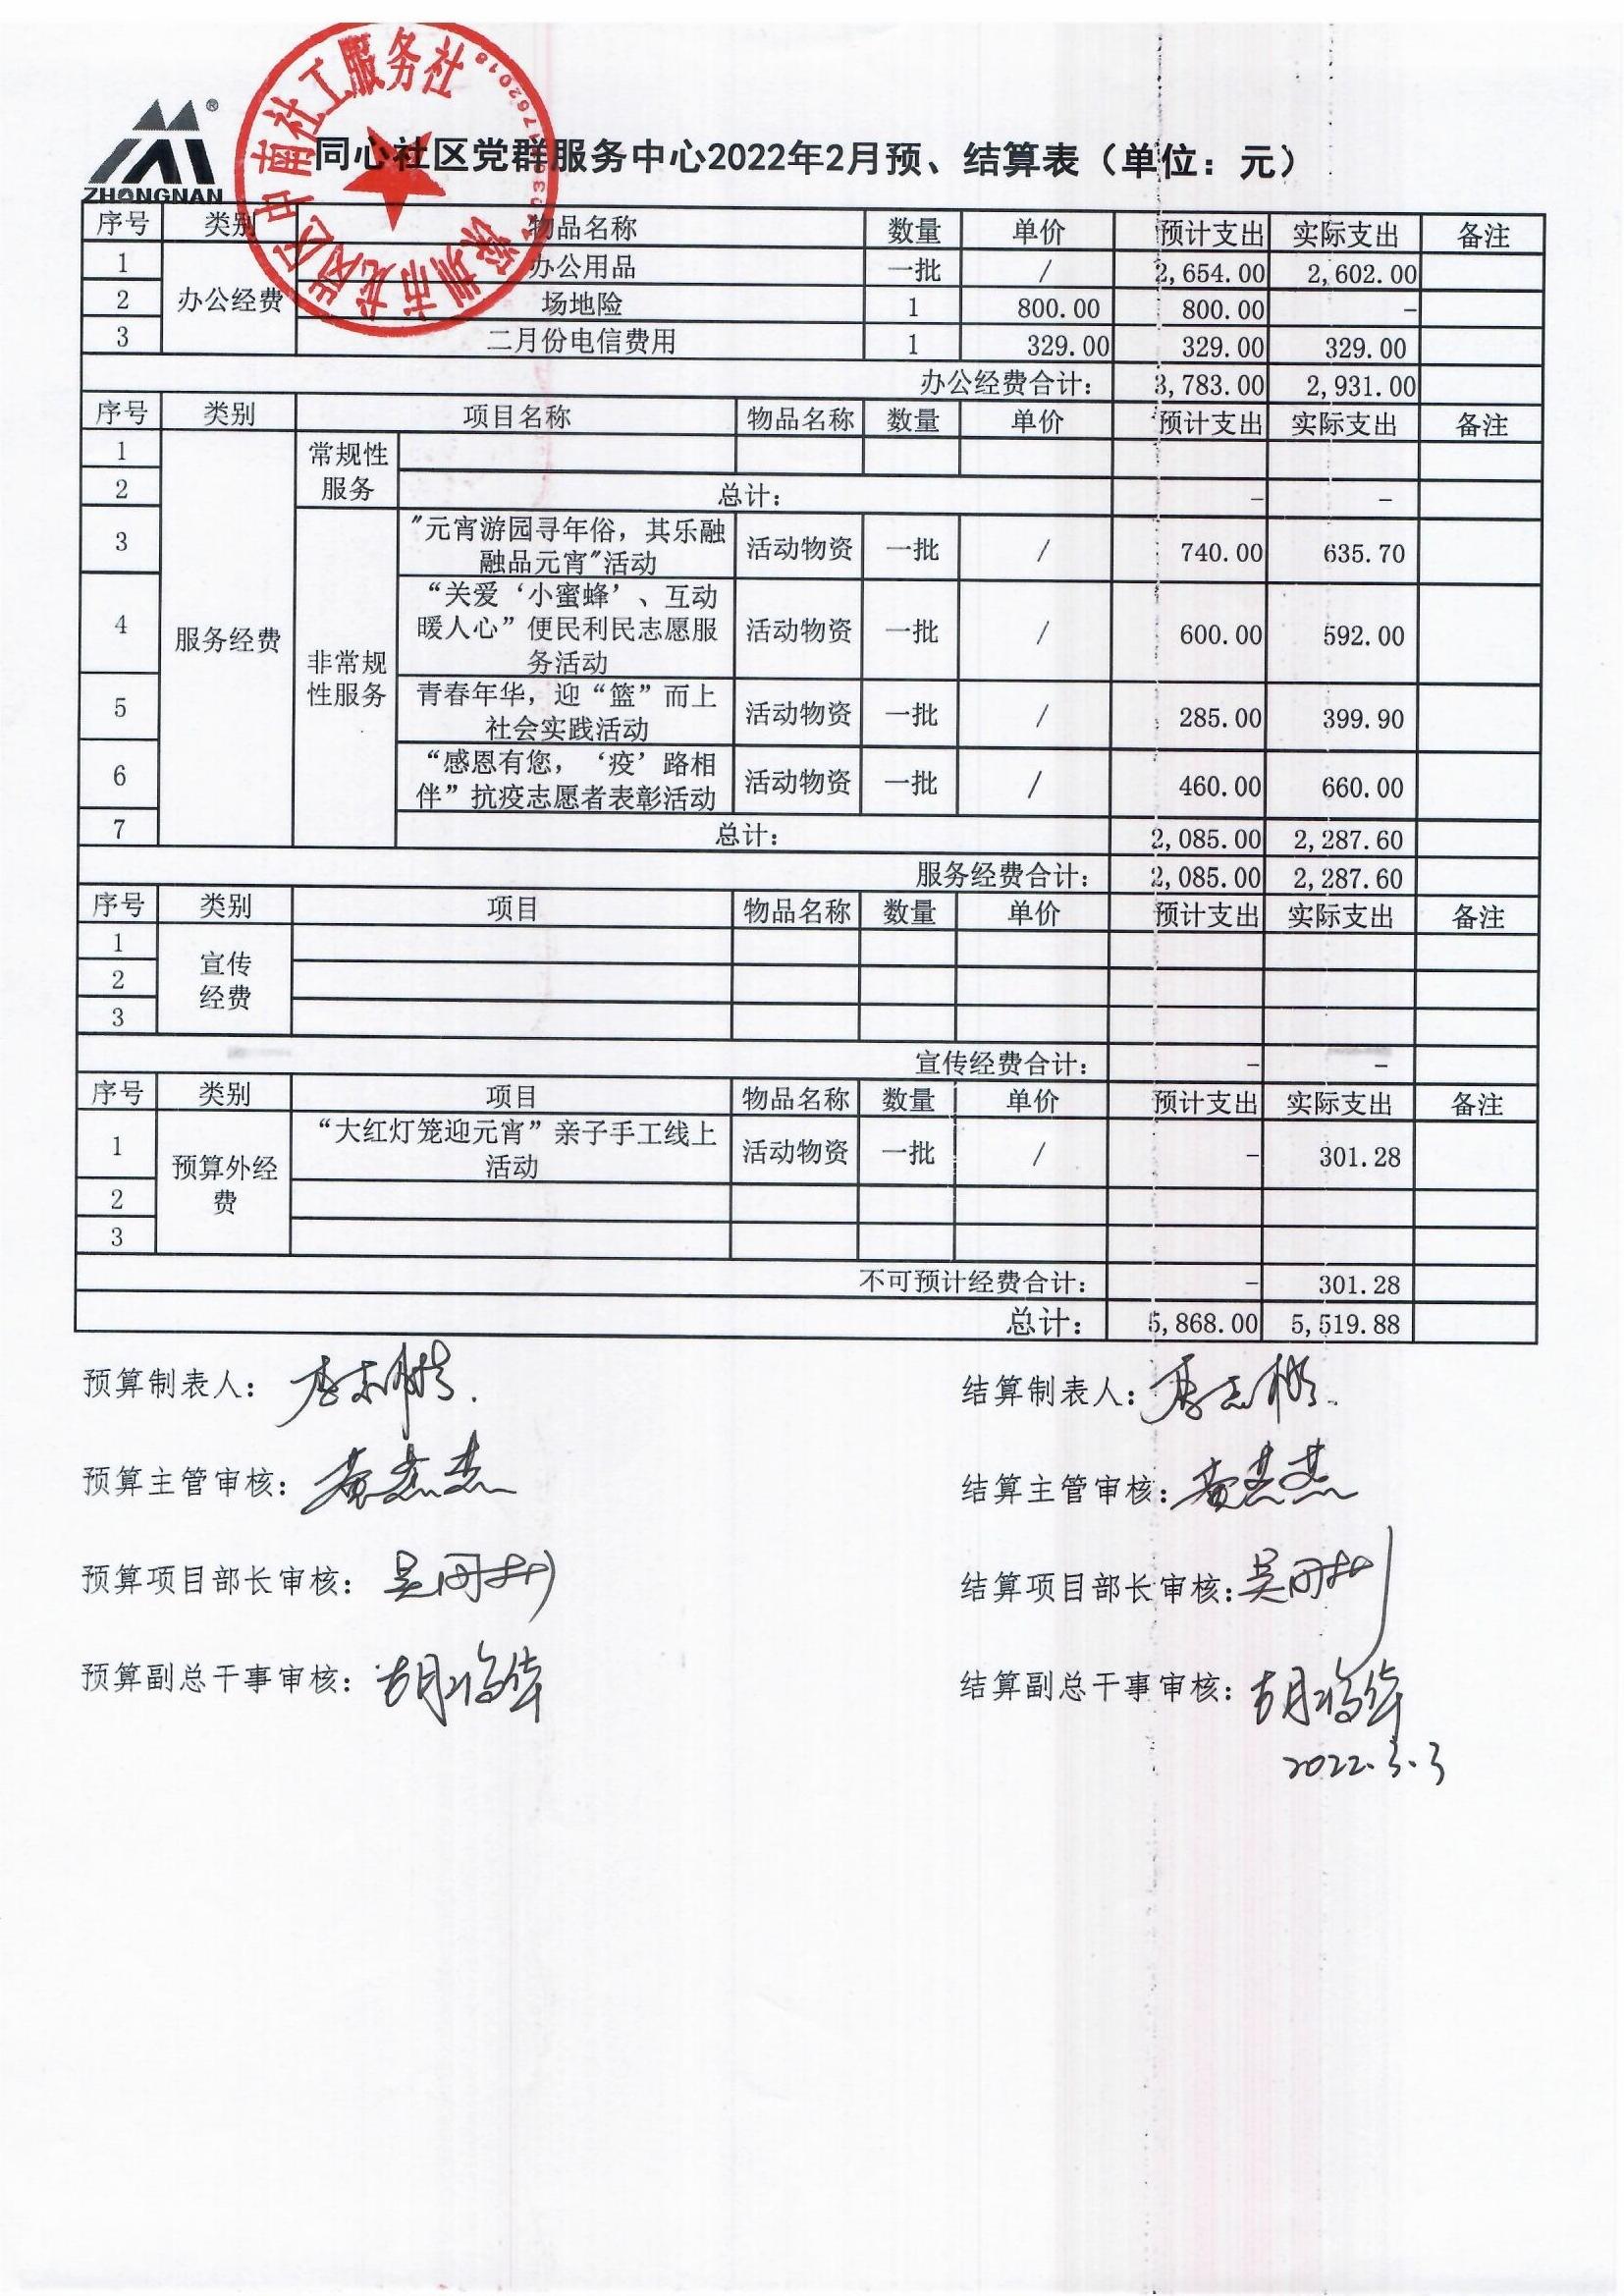 ZHONGNAN
深圳市龙岗区中南社工服务社
同心社区党群服务中心2022年2月预、结算表（单位：元）
序号 类别 物品名称 数量 单价 预计支出 实际支出 备注
1 办公经费 办公用品 一批 / 2,654.00 2,602.00
2 场地险 1 800.00 800.00 -
3 二月份电信费用 1 329.00 329.00 329.00
办公经费合计： 3,783.00 2,931.00
序号 类别 项目名称 物品名称 数量 单价 预计支出 实际支出 备注
1 服务经费 常规性
2 服务 总计： - -
3 非常规性服务 "元宵游园寻年俗，其乐融
融品元宵"活动 活动物资 一批 / 740.00 635.70
4 “关爱‘小蜜蜂’、互动
暖人心”便民利民志愿服
务活动 活动物资 一批 / 600.00 592.00
5 青春年华，迎“篮”而上
社会实践活动 活动物资 一批 / 285.00 399.90
6 “感恩有您，‘疫’路相
伴”抗疫志愿者表彰活动 活动物资 一批 / 460.00 660.00
7 总计： 2,085.00 2,287.60
服务经费合计： 2,085.00 2,287.60
序号 类别 项目 物品名称 数量 单价 预计支出 实际支出 备注
1 宣传
2 经费
3
宣传经费合计： - -
序号 类别 项目 物品名称 数量 单价 预计支出 实际支出 备注
1 预算外经费 “大红灯笼迎元宵”亲子手工线上
活动 活动物资 一批 / - 301.28
2
3
不可预计经费合计： - 301.28
总计： 5,868.00 5,519.88
预算制表人： 结算制表人：
预算主管审核： 结算主管审核：
预算项目部长审核： 结算项目部长审核：
预算副总干事审核： 结算副总干事审核：
2022.3.3